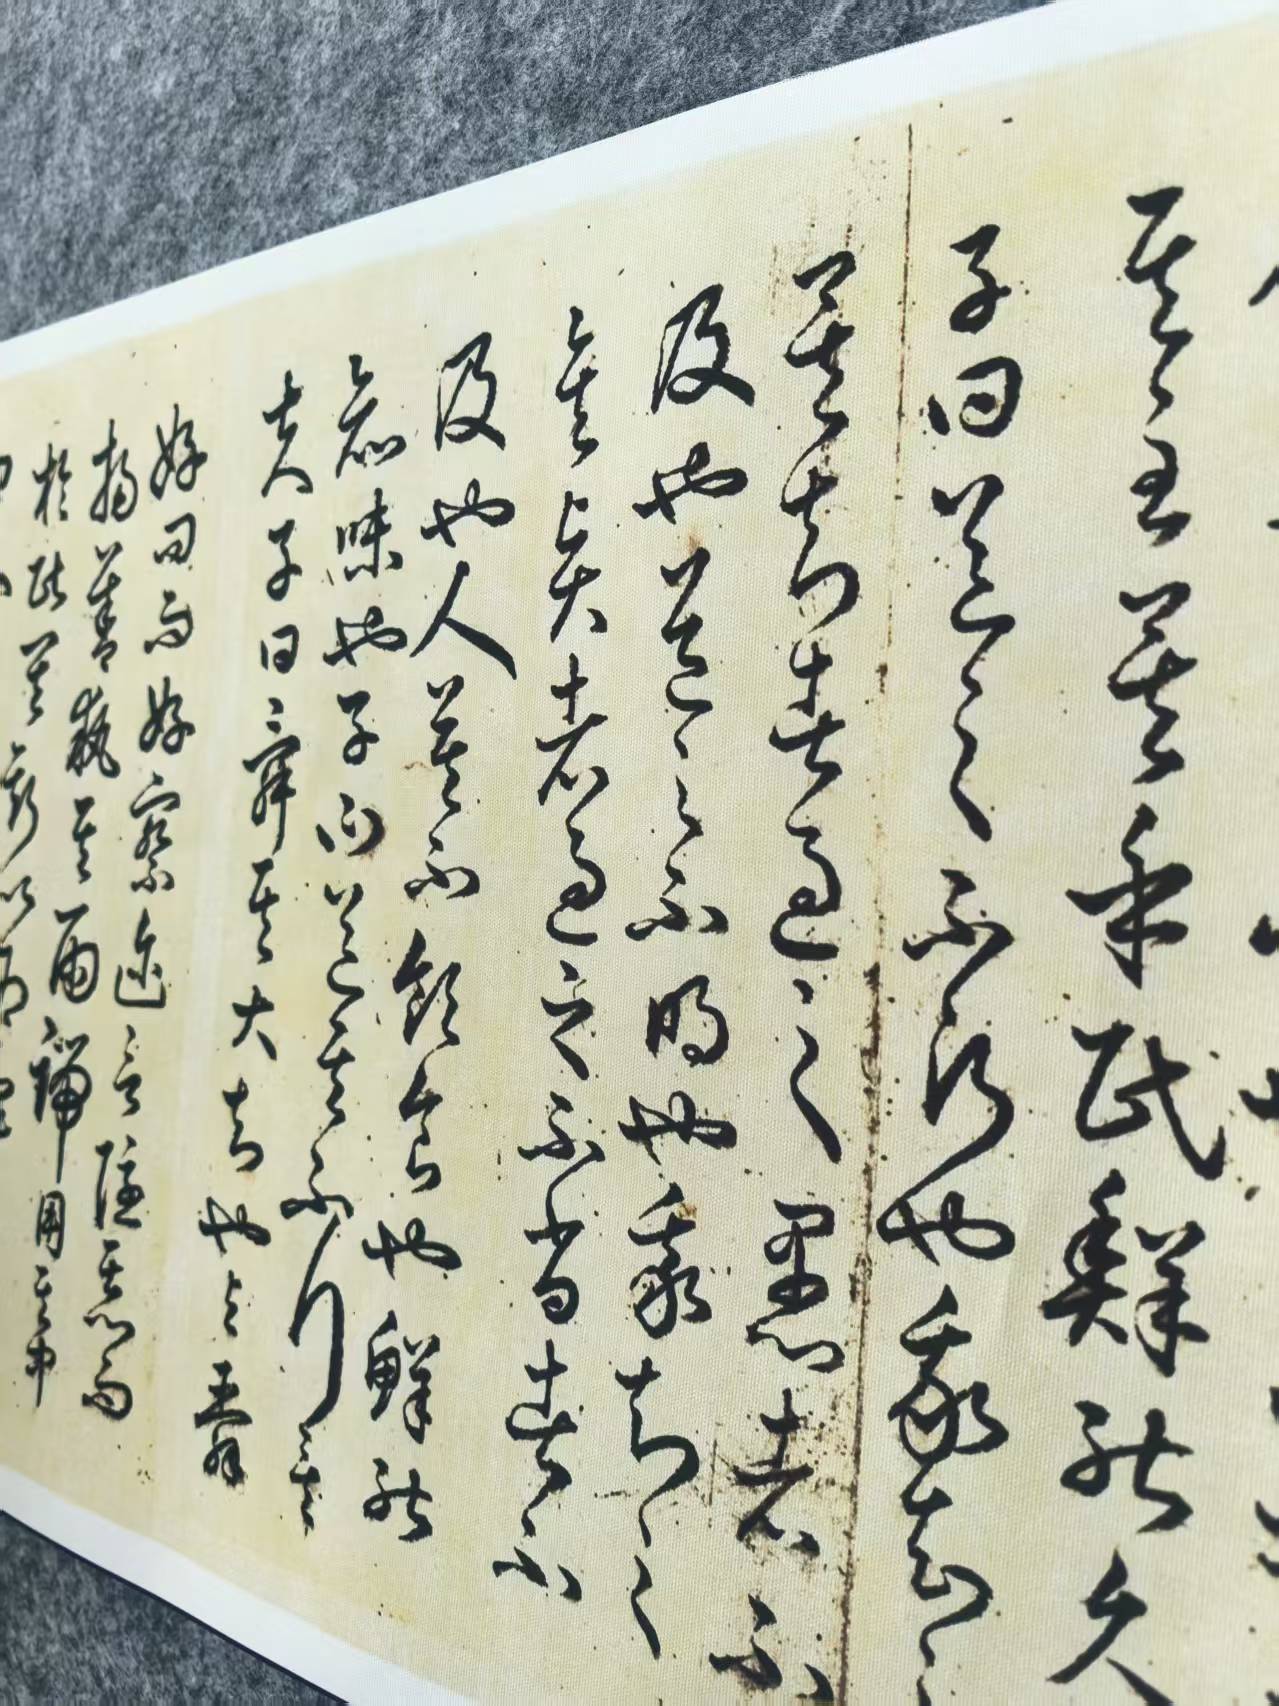 其至矣乎民鮮能久
子曰道之不行也我知之
矣知者過之愚者不
及也道之不明也我知之
矣賢者過之不肖者不
及也人莫不飲食也鮮能
知味也子曰道其不行矣
夫子曰舜其大知也與舜
好問而好察邇言隱惡而
揚善執其兩端用其中
於民其斯以為